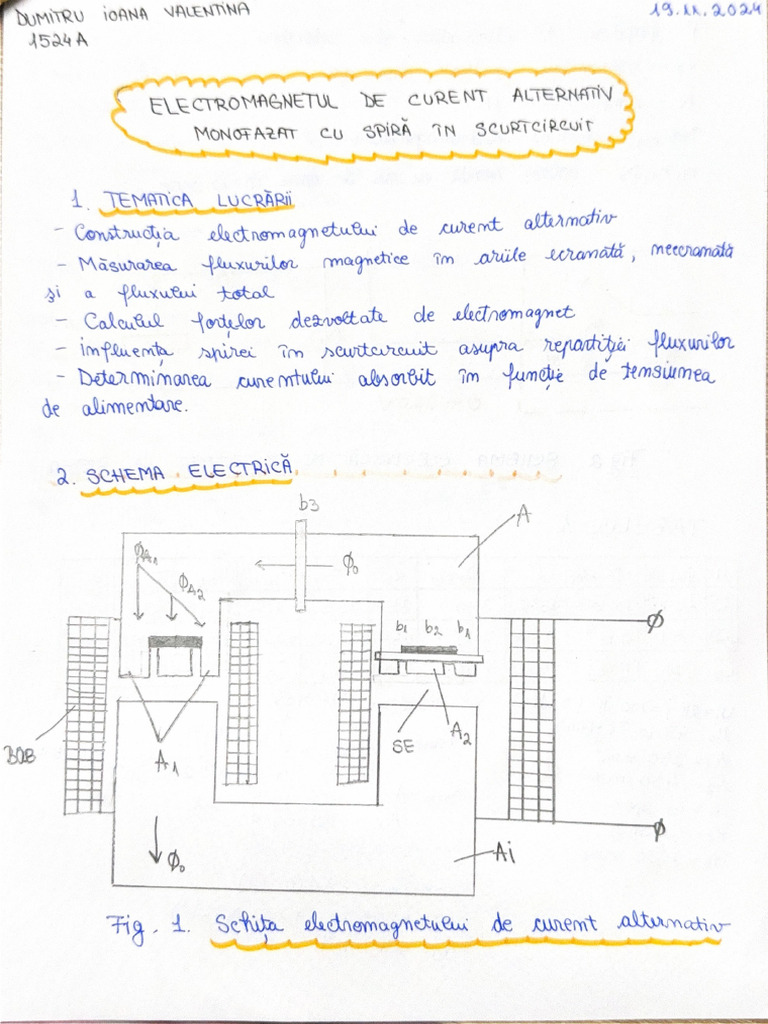 DUMITRU IOANA VALENTINA
19.11.2024
1524A
ELECTROMAGNETUL DE CURENT ALTERNATIV
MONOFAZAT CU SPIRĂ ÎN SCURTCIRCUIT
1. TEMATICA LUCRĂRII
- Construcția electromagnetului de curent alternativ
- Măsurarea fluxurilor magnetice în ariile ecranată, neecranată
și a fluxului total
- Calculul forțelor dezvoltate de electromagnet
- Influența spirei în scurtcircuit asupra repartiției fluxurilor
- Determinarea curentului absorbit în funcție de tensiunea
de alimentare.
2. SCHEMA ELECTRICĂ
b3
A
ϕA1
ϕ0
ϕA2
b1 b2 b1
A2
SE
BOB
A1
ϕ0
Ai
Fig. 1. Schița electromagnetului de curent alternativ